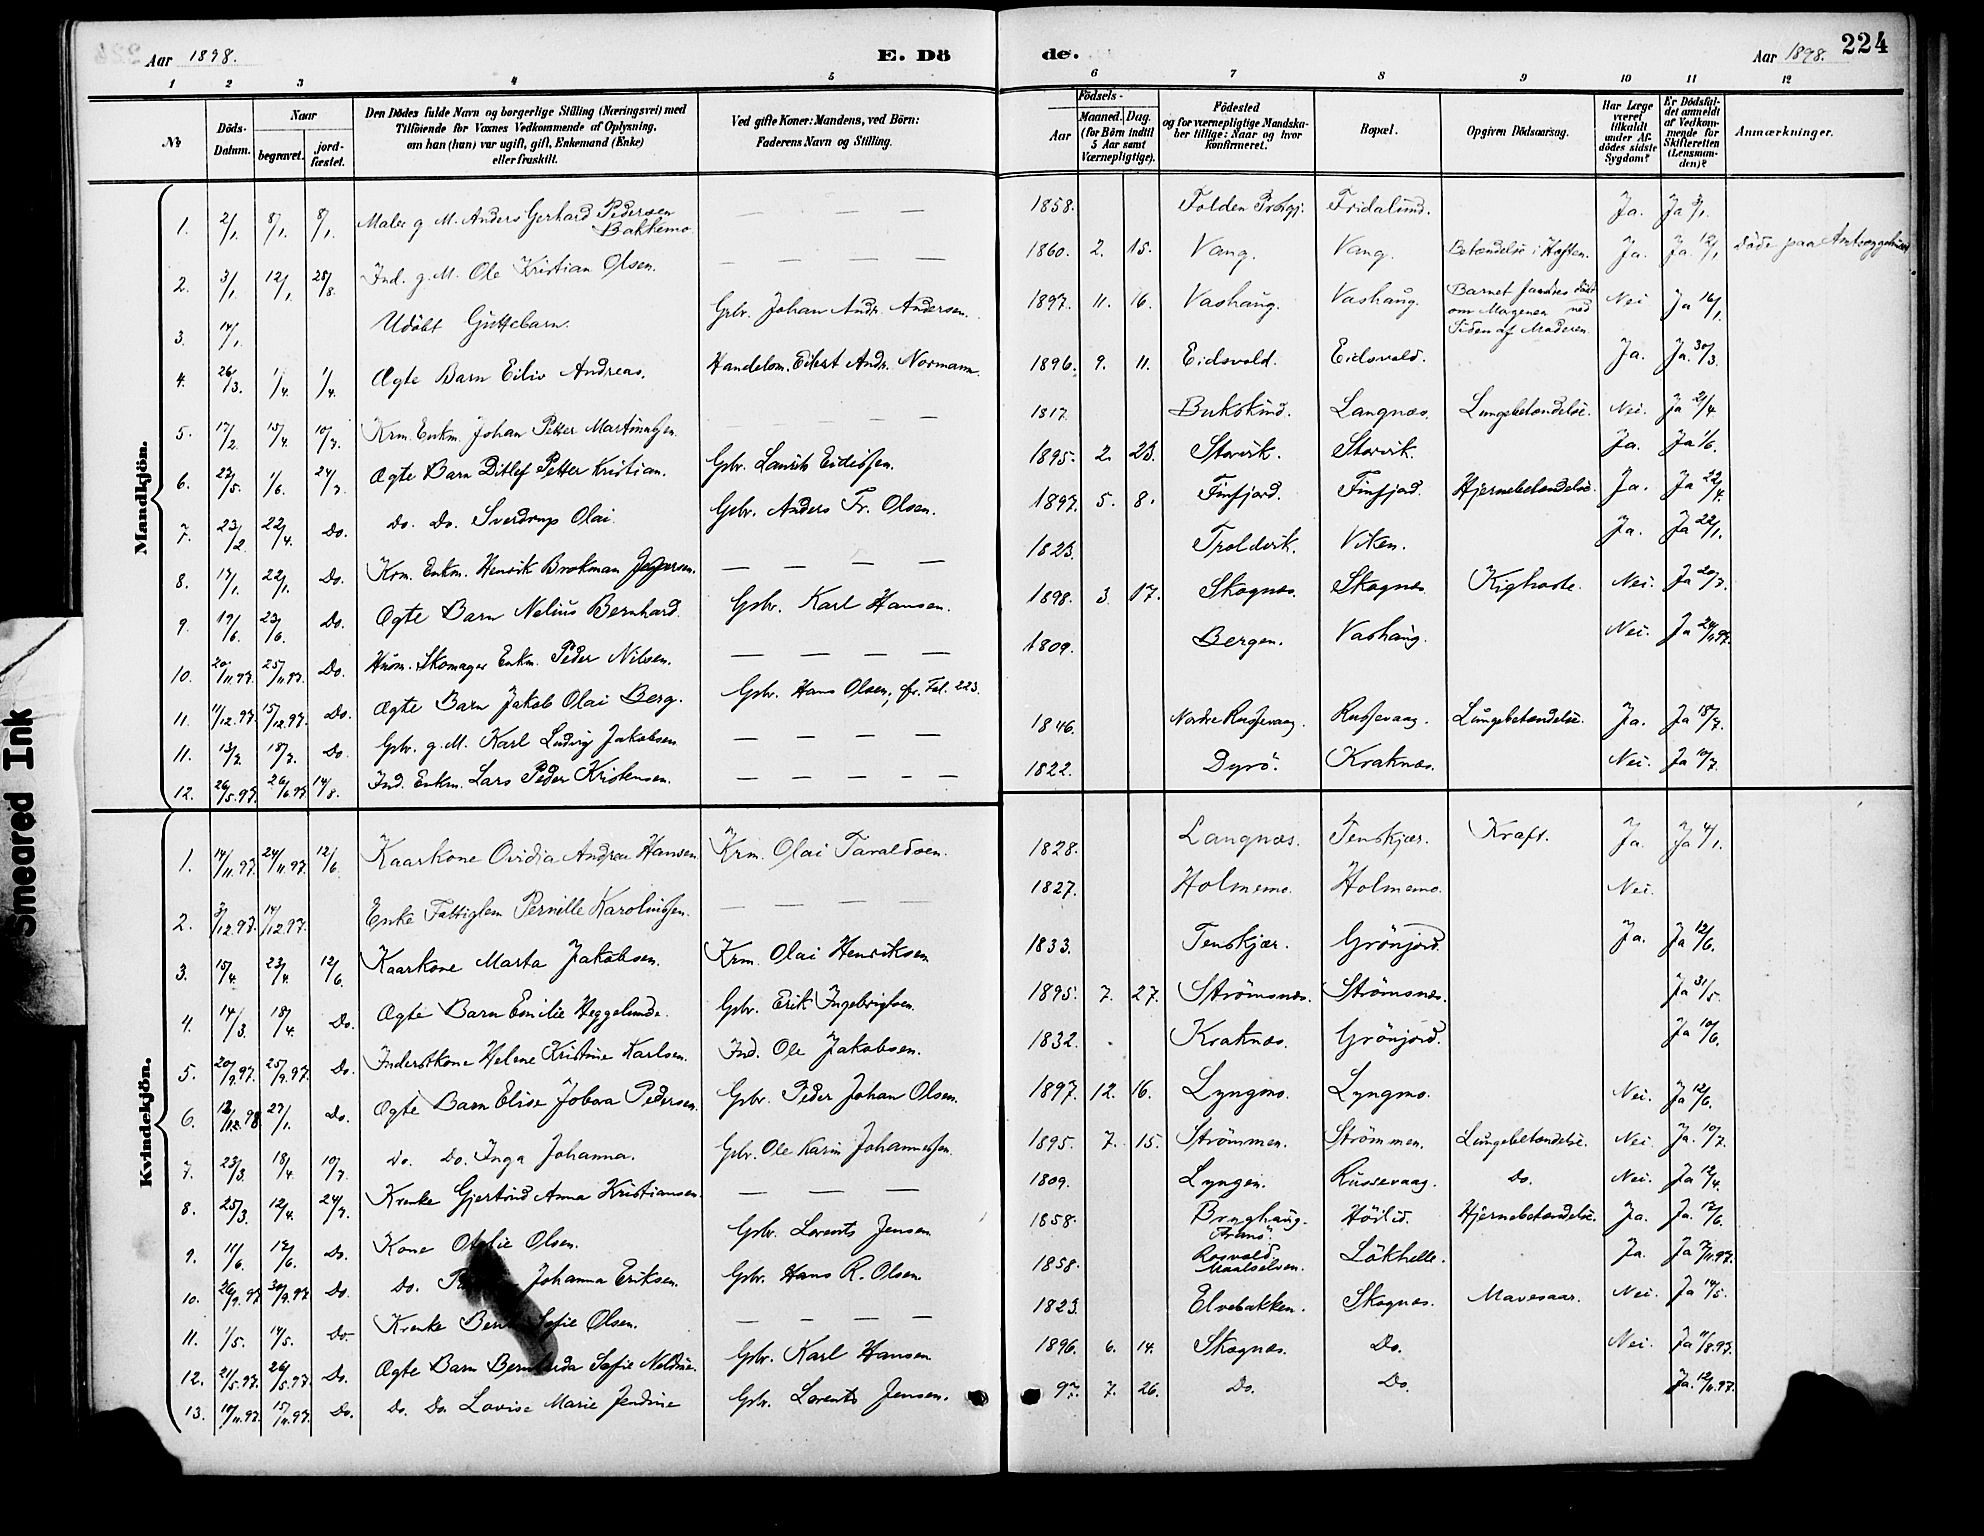 Aar 1898. E. Döde. Aar 1898. 224
1 2 3 4 5 6 7 8 9 10 11 12
No Döds-Datum. Naar begravet. jord-fæstet. Den Dödes fulde Navn og borgerlige Stilling (Næringsvei) med Tilföiende for Voxnes Vedkommende af Oplysning, om han (hun) var ugift, gift, Enkemand (Enke) eller fraskilt. Ved gifte Koner: Mandens, ved Börn: Faderens Navn og Stilling. Födsels- Aar Maaned. Dag. (for Börn indtil 5 Aar samt Værnepligtige). Födested og for værnepligtige Mandskaber tillige: Naar og hvor konfirmeret. Bopæl. Opgiven Dödsaarsag. Har Læge været tilkaldt under Afdödes sidste Sygdom? Er Dödsfaldet anmeldt af Vedkommende for Skifteretten (Lensmanden)? Anmærkninger.
Mandkjön.
1. 2/1 8/1. 8/1. Maler g. M. Anders Gerhard Pedersen Bakkemo — — — 1858. Folden Prgj. Fridalund. Ja. Ja 3/1.
2. 3/1. 12/1. 28/8. Ind. g. M. Ole Kristian Olsen. — — — 1860. 2. 15. Vang. Vang. Betændelse i Hoften. Ja. Ja. 12/1. döde paa Amtssygehuset
3. 14/1. Udöbt Guttebarn. Gbr. Johan Andr. Andersen. 1897. 11. 16. Vashaug. Vashaug. Barnet fandtes dödt om Morgenen ved Siden af Moderen. Nei Ja 16/1.
4. 26/3. 1/4. 1/4. Ægte Barn Eiliv Andreas. Handelsm. Eilert Andr. Normann. 1896. 9. 11. Eidsvold. Eidsvold. Ja. Ja. 30/3.
5. 17/2. 15/4. 10/7. Krm. Enkm. Johan Petter Martinussen. — — — 1817. Bukskind. Langnæs. Lungebetændelse. Nei. Ja 21/4.
6. 22/5. 1/6. 24/7. Ægte Barn Ditlef Petter Kristian. Gbr. Laurits Eidissen. 1895. 2. 23. Storvik. Storvik. Ja. Ja 1/6.
7. 23/2. 22/4. Do. Do. Do. Sverdrup Olai. Gbr. Anders Fr. Olsen. 1897. 5. 8. Finfjord. Finfjord. Hjernebetændelse. Ja. Ja 22/4.
8. 17/1. 22/1. Do. Krm. Enkm. Henrik Brokman Jespersen. — — — — 1823. Troldvik. Viken. Ja. Ja 22/1.
9. 19/6. 23/6. Do. Ægte Barn Nelius Bernhard. Gbr. Karl Hansen. 1898. 3 17. Skognæs. Skognæs. Kighoste. Nei. Ja 20/7.
10. 20/11.97. 25/11.97. Do. Husm. Skomager Enkm. Peder Nilsen. — — — — 1809. Bergen. Vashaug. Nei. Ja 24/11.97.
11. 11/12.97. 15/12.97. Do. Ægte Barn Jakob Olai Berg. Gbr. Hans Olsen, cfr. Fol. 223.
11. 13/7. 18/7. Do. Gbr. g. M. Karl Ludvig Jakobsen — — — — 1846. Nordre Russevaag. Russevaag. Lungebetændelse. Ja. Ja 18/7.
12. 26/5.97. 26/6.97 14/8. Ind. Enkm. Lars Peder Kristensen. — — — — — 1822. Dyrö. Kraknæs. Nei. Ja 10/7.
Kvindekjön.
1. 14/11.97. 24/11.97. 12/6. Kaarkone Ovidia Andrea Hansen. Krm. Olai Taraldsen. 1828. Langnæs. Tenskjær. Kræft. Ja. Ja 4/1.
2. 3/12.97. 14/12.97. Enke Fattiglem Pernille Karolinssen. — — — — 1827. Holmemo. Holmemo. Nei.
3. 15/4. 23/4. 12/6. Kaarkone Marta Jakobsen. Krm. Olai Henriksen 1833. Tenskjær. Grönjord. Ja. Ja 12/6.
4. 14/3. 18/4. Do. Ægte Barn Emilie Heggelunde. Gbr. Erik Ingebrigtsen. 1895. 7. 27. Strömsnæs. Strömsnæs. Ja 31/5.
5. 20/9.97. 25/9.97. Do. Inderstkone Helene Kristine Karlsen. Ind. Ole Jakobsen. 1832. Kraknæs. Grönjord. Ja 10/6.
6. 12/12.98. 27/1. Do. Ægte Barn Elise Pedersen. Gbr. Peder Johan Olsen. 1897. 12. 16. Lyngmo. Lyngmo. Nei. Ja 12/6.
7. 23/3. 18/4. 10/7. Do. Do. Inga Johanna. Gbr. Ole Karin Johannessen. 1895. 7. 15. Strömmen. Strömmen. Lungebetændelse. Nei. Ja. 10/7.
8. 25/3. 12/4. 24/7. Krenke Gjertrud Anna Kristiansen. — — — 1809. Lyngen. Russevaag. Do. Nei. Ja 12/4.
9. 11/6. 12/6. Do. Kone Otelie Olsen. Gbr. Lorents Jensen. 1858. Brughaug. Tranö. Höilid. Hjernebetændelse. Ja. Ja. 12/6.
10. 26/9.97 30/9.97 Do. Do. Johanna Eriksen. Gbr. Hans R. Olsen. 1858. Rosvold. Maalselven. Lökhelle. Ja. Ja 7/11.97.
11. 1/5. 14/5. Do. Krenke Sofie Olsen. — — — — 1823. Elvebakken. Skognæs. Mavesaar. Nei. Ja 14/5.
12. 21/5.97. 26/5.97. Do. Ægte Barn Sofie Gbr. Karl Hansen. 1896. 6. 14. Skognæs. Do. Nei. Ja 11/8.97.
13. 10/11.97. 15/11.97. Do. Do. Do. Lovise Marie Jendine Gbr. Lorents Jensen. 97. 7. 26. Do. Do. Ja. 12/11.97.
Smeared Ink